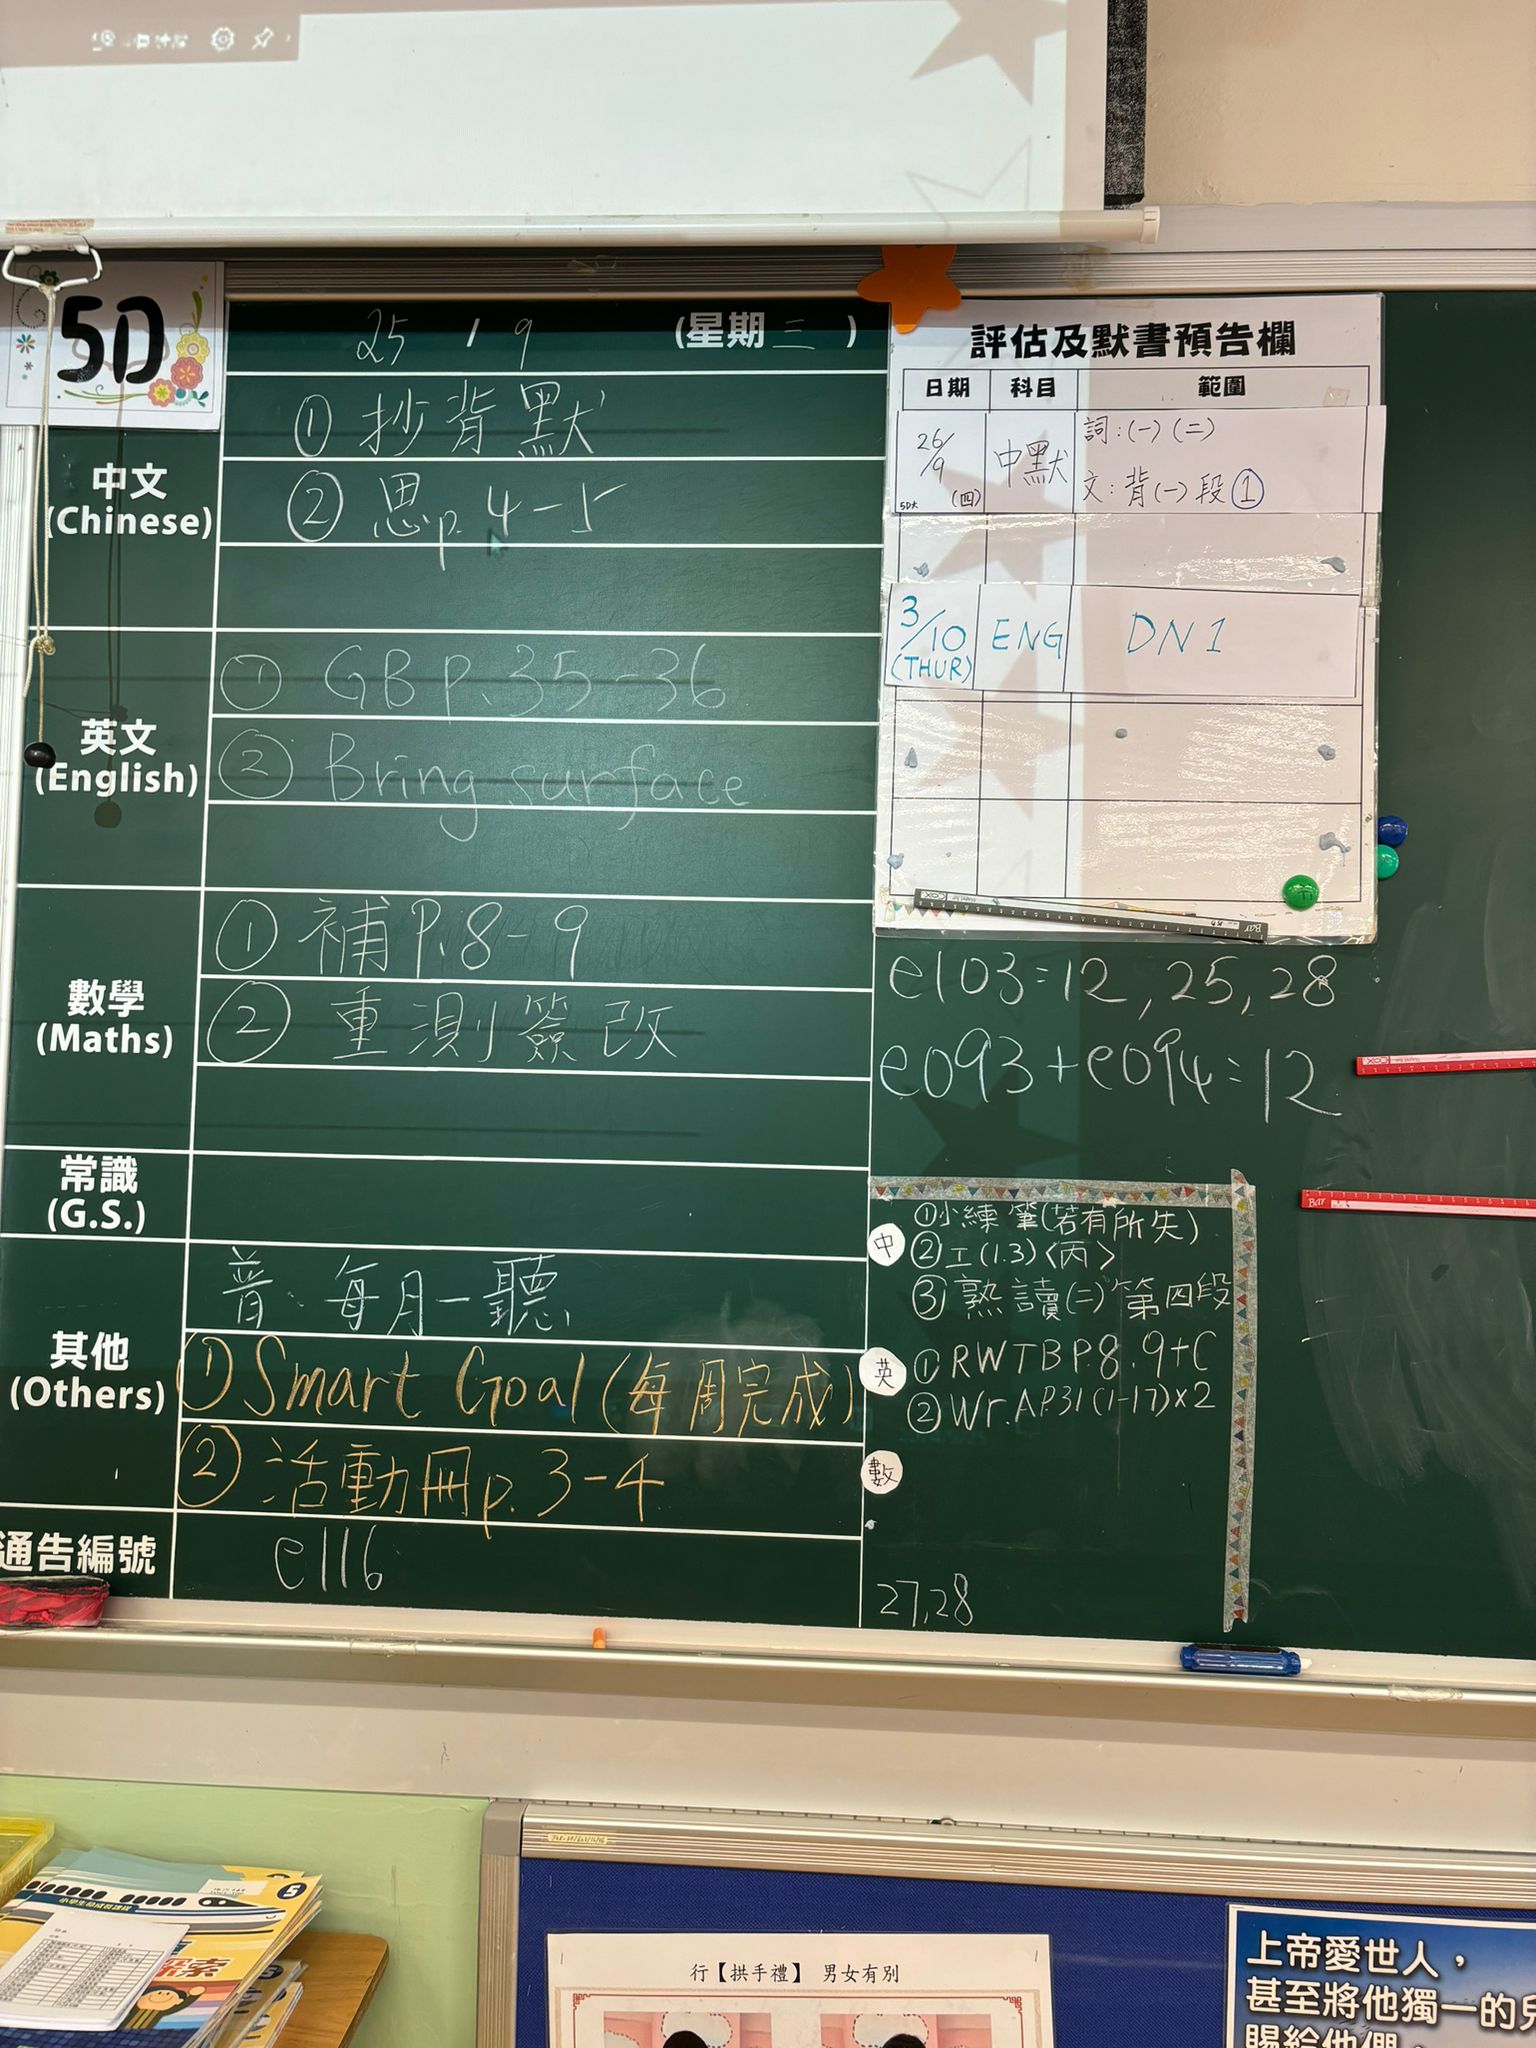 5D
25 / 9 (星期三)
中文
(Chinese)
① 抄背默
② 思p. 4-5
英文
(English)
① GB p.35-36
② Bring surface
數學
(Maths)
① 補P.8-9
② 重測簽改
常識
(G.S.)
其他
(Others)
普: 每月一聽
① Smart Goal (每周完成)
② 活動冊p.3-4
通告編號
e116
評估及默書預告欄
日期 科目 範圍
26/9 (四) 中默 詞:(一)(二)
文:背(一)段①
3/10 (THUR) ENG DN1
e103=12,25,28
e093+e094=12
中
①小練筆(若有所失)
②工(1.3)〈丙〉
③熟讀(二)第四段
英
①RWTBP.8.9+C
②Wr.AP31(1-17)×2
數
27,28
行【拱手禮】 男女有別
上帝愛世人，
甚至將他獨一的
賜給他們，